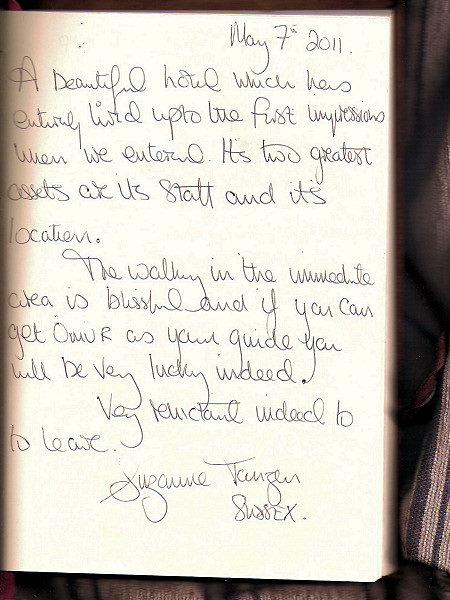 May 7th 2011.
A beautiful hotel which has
entirely lived upto the first impressions
when we entered. Its two greatest
assets are its staff and its
location.
The walking in the immediate
area is blissful and if you can
get OmuR as your guide you
will be very lucky indeed.
Very reluctant indeed to
to leave.
Suzanne
SUSSEX.